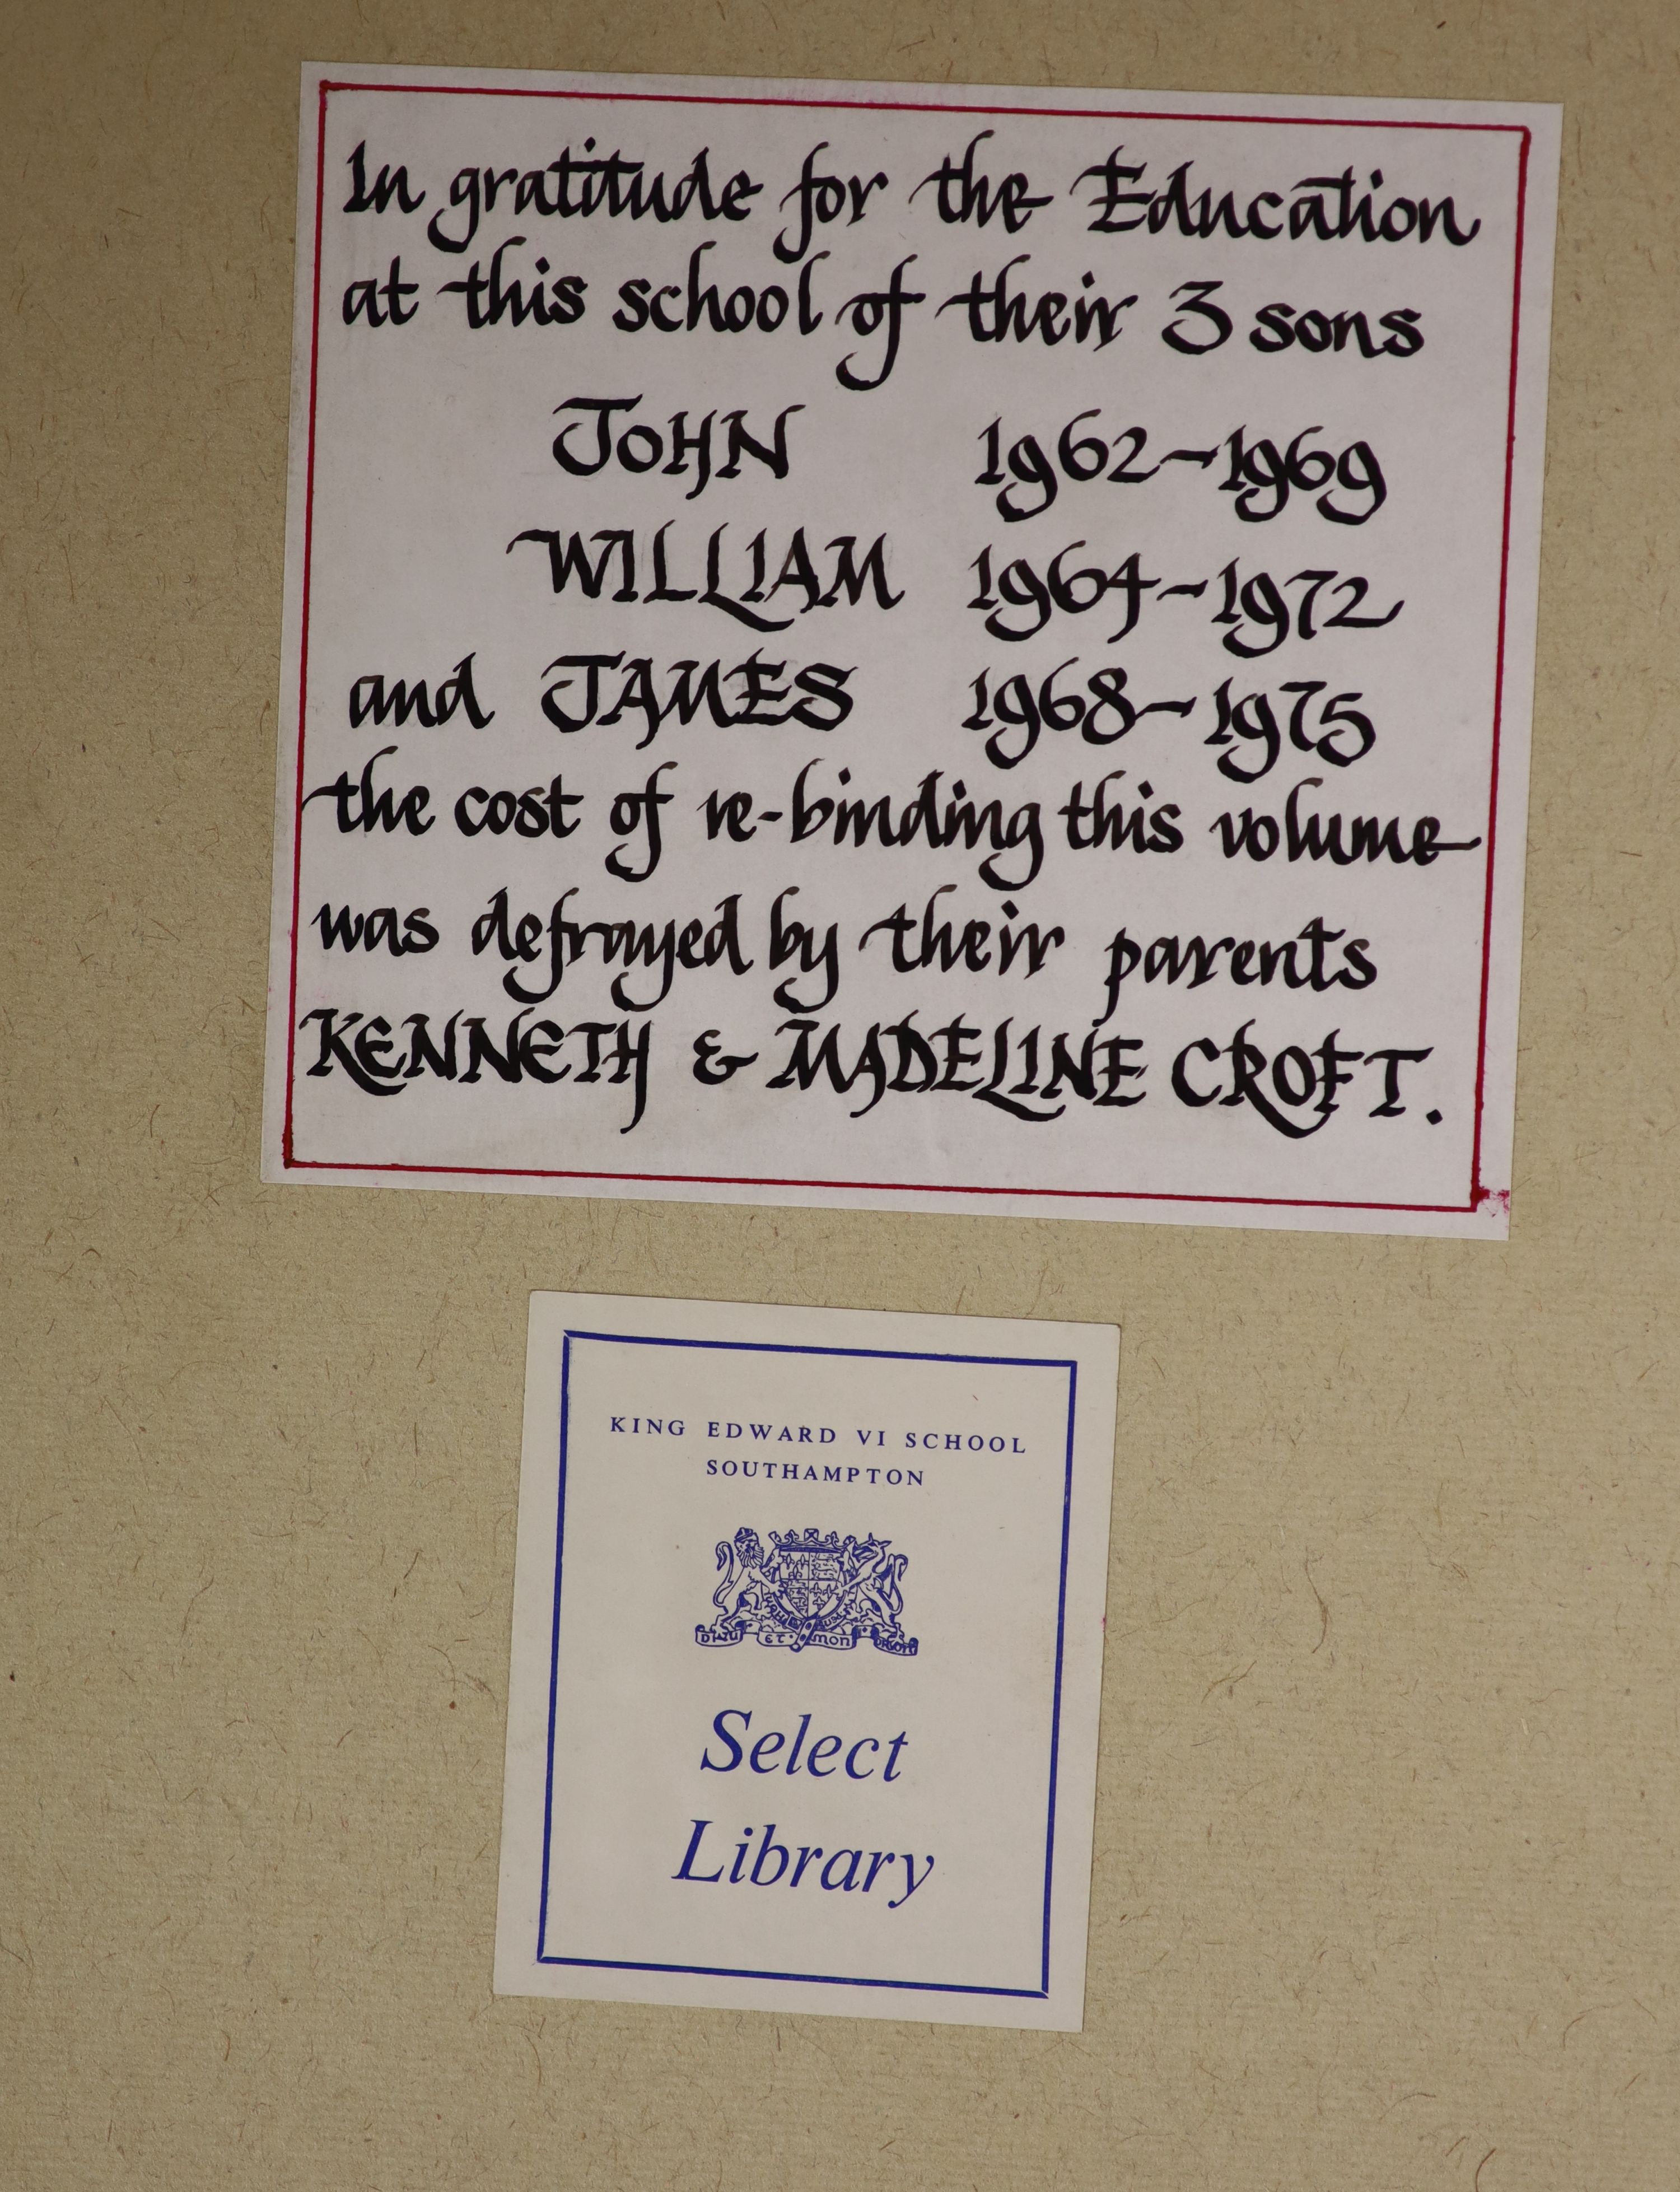 In gratitude for the Education
at this school of their 3 sons
JOHN 1962-1969
WILLIAM 1964-1972
and JAMES 1968-1975
the cost of re-binding this volume
was defrayed by their parents
KENNETH & MADELINE CROFT.
KING EDWARD VI SCHOOL
SOUTHAMPTON
ET MON
Select
Library